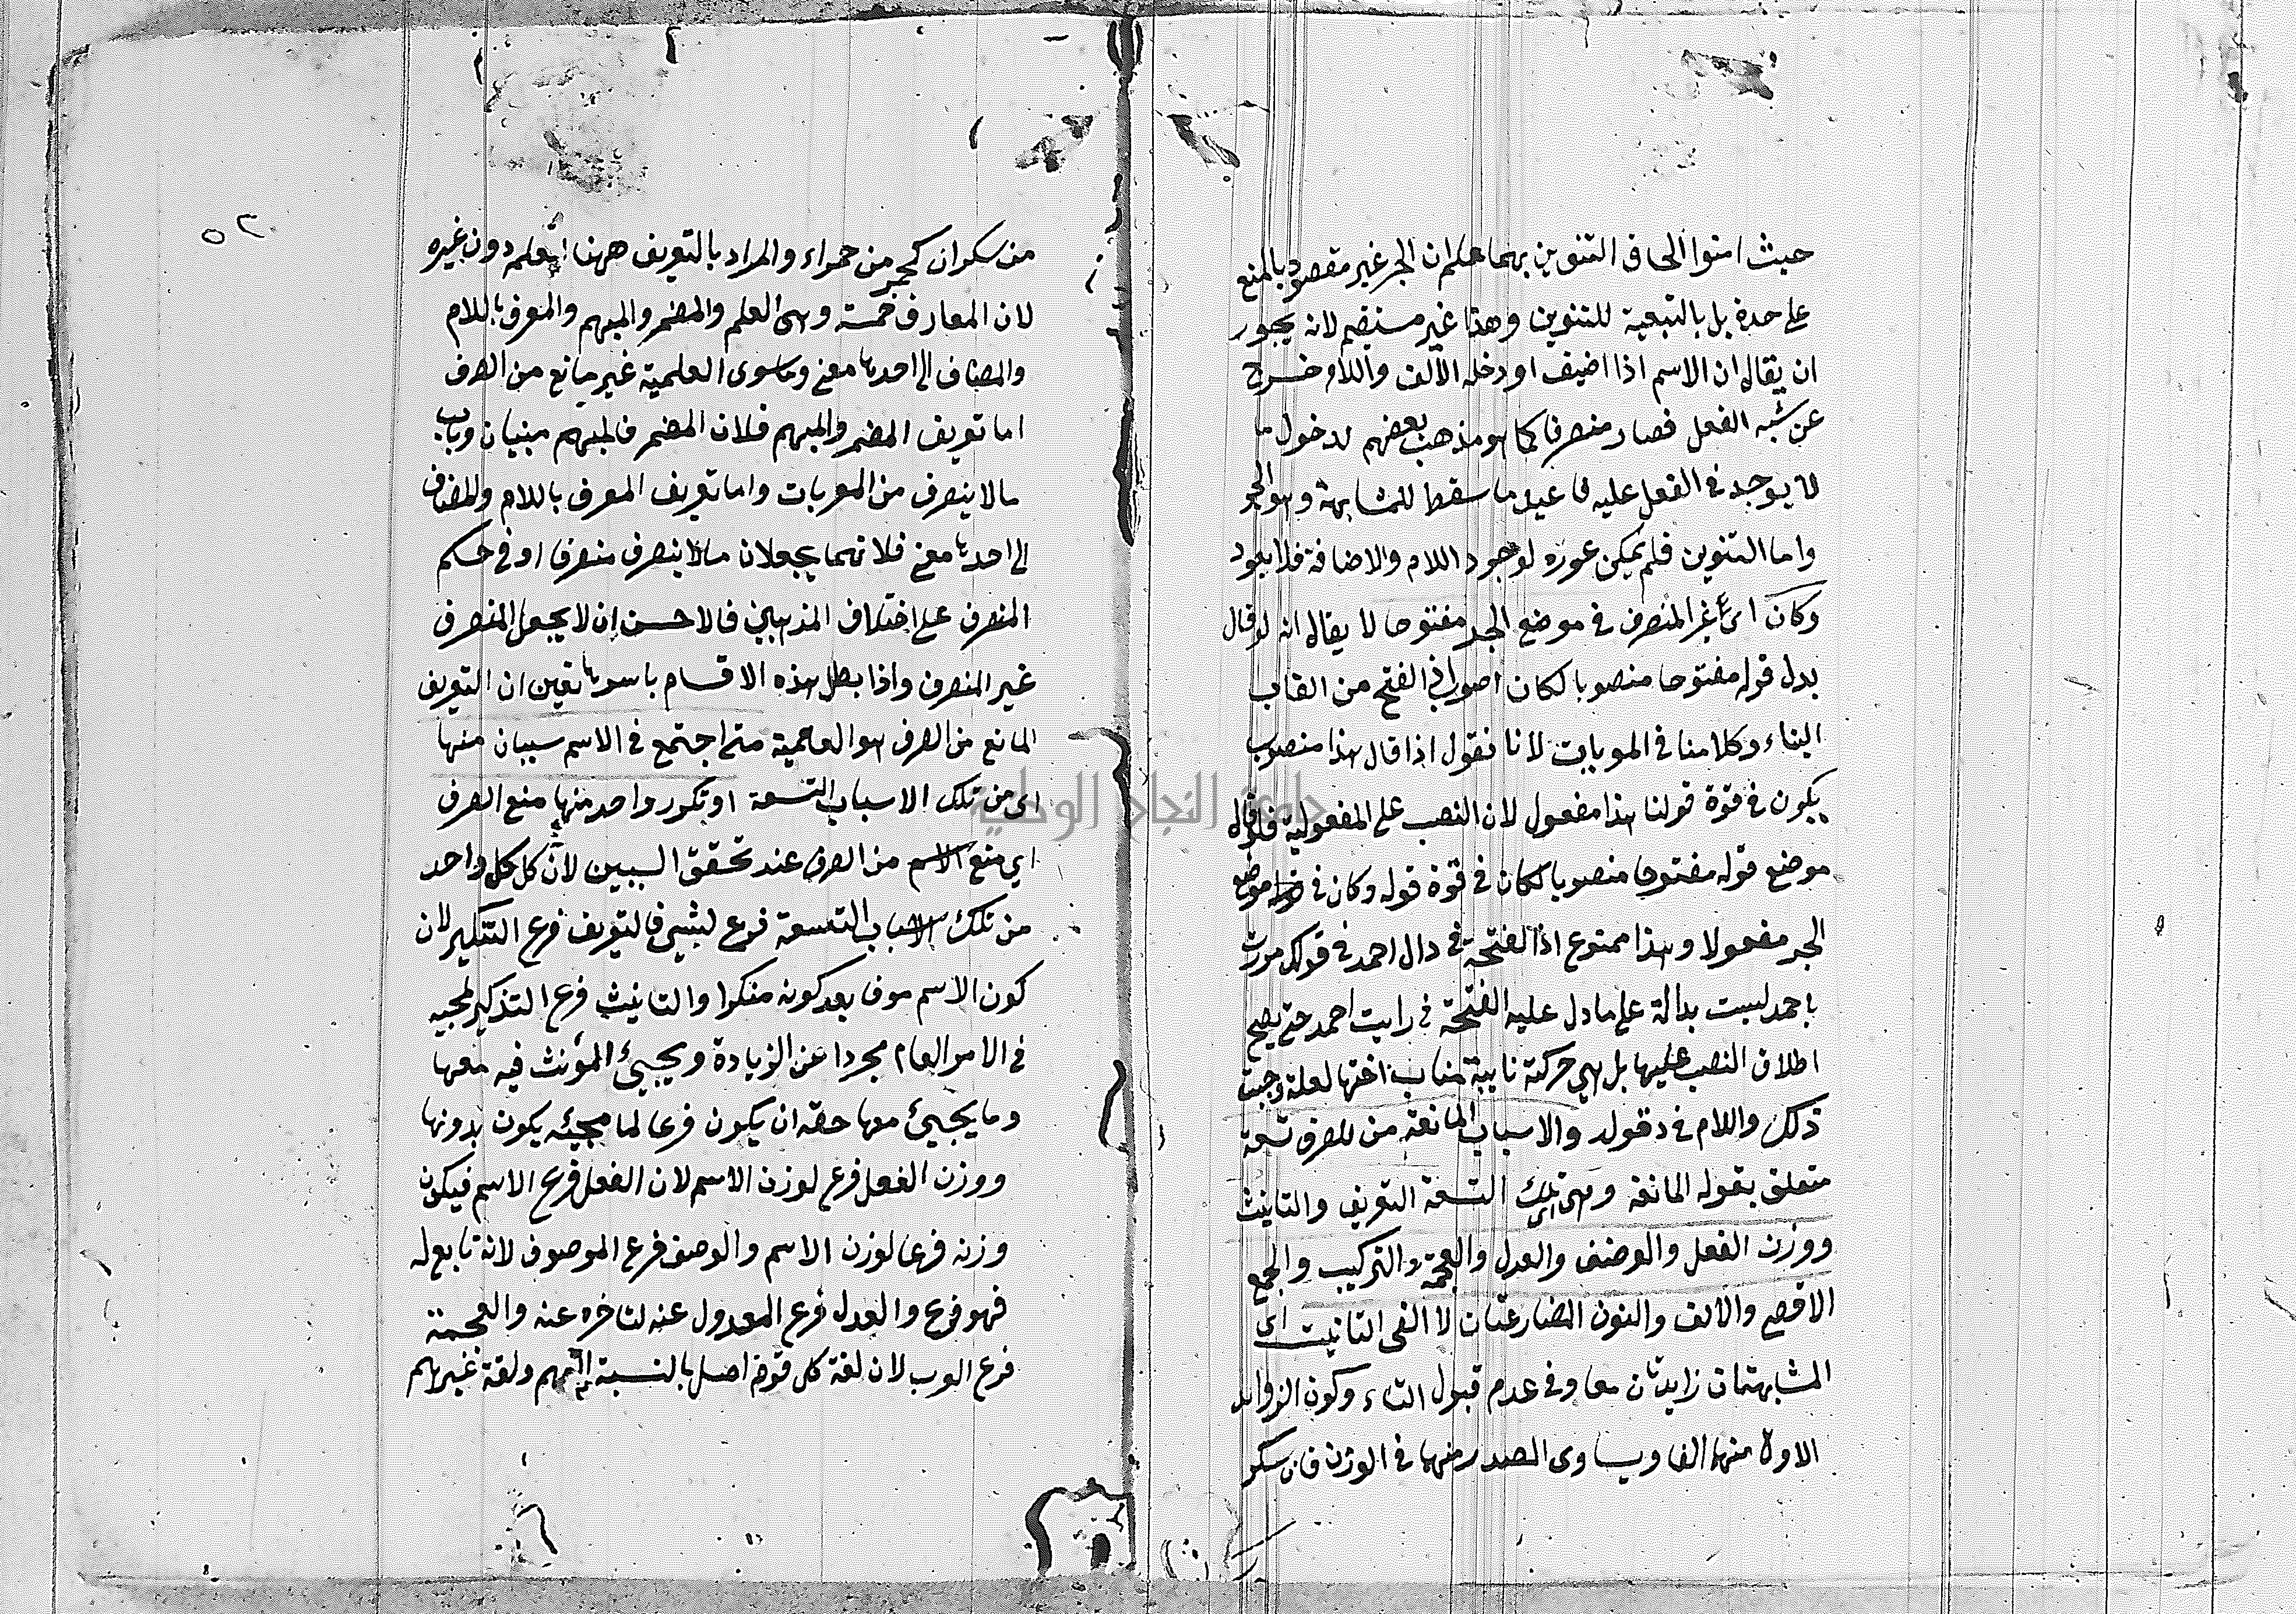 حيث امنوا الحاق التنوين بهما علم ان الجر غير مقصود بالمنع
على حدة بل بالتبعية للتنوين وهذا غير مستقيم لانه يجوز
ان يقال ان الاسم اذا اضيف او دخله الالف واللام خرج
عن شبه الفعل فصار منصرفا كما هو مذهب بعضهم لدخول ما
لا يوجد في الفعل عليه فاعيد ما سقط للمشابهة وهو الجر
واما التنوين فلم يمكن عوده لوجود اللام والاضافة فلا يعود
وكان اي غير المنصرف في موضع الجر مفتوحا لا يقال انه لو قال
بدل قوله مفتوحا منصوبا لكان اصوب اذ الفتح من القاب
البناء وكلامنا في المعربات لانا نقول اذا قال هذا منصوب
يكون في قوة قولنا هذا مفعول لان النصب علم المفعولية فلو قال
موضع قوله مفتوحا منصوبا لكان في قوة قوله وكان في موضع
الجر مفعولا وهذا ممنوع اذ الفتحة في دال احمد في قولك مررت
باحمد ليست بدالة على ما دل عليه الفتحة في رايت احمد حتى يصح
اطلاق النصب عليها بل هي حركة نايبة مناب اختها لعلة وجبت
ذلك واللام في قوله والاسباب المانعة من الصرف تسعة
متعلق بقوله المانعة وهي اي تلك التسعة التعريف والتانيث
ووزن الفعل والوصف والعدل والعجمة والتركيب والجمع
الاقصى والالف والنون المضارعتان لالفي التانيث اي
المشابهتان زايدتان معا وفي عدم قبول التاء وكون الزوايد
الاولى منها الفا ويساوى الصدر منهما في الوزن فان سكر
٥٢
من سكران كحمر من حمراء والمراد بالتعريف ههنا العلم دون غيره
لان المعارف خمسة وهي العلم والمضمر والمبهم والمعرف باللام
والمضاف الى احدها معنى وما سوى العلمية غير مانع من الصرف
اما تعريف المضمر والمبهم فلان المضمر فالمبهم مبنيان وباب
ما لا ينصرف من المعربات واما تعريف المعرف باللام والمضاف
الى احدها معنى فلانهما يجعلان ما لا ينصرف منصرفا او في حكم
المنصرف على اختلاف المذهبين فالاحسن ان لا يجعل المنصرف
غير المنصرف واذا بطل هذه الاقسام باسرها تعين ان التعريف
المانع من الصرف هو العلمية متى اجتمع في الاسم سببان منها
اي من تلك الاسباب التسعة او تكرر واحد منها منع الصرف
اي منع الاسم من الصرف عند تحقق السببين لان كل واحد
من تلك الاسباب التسعة فرع لشيء فالتعريف فرع التنكير لان
كون الاسم معرفا بعد كونه منكرا والتانيث فرع التذكير لمجيه
في الامر العام مجردا عن الزيادة ويجيئ المؤنث فيه معها
وما يجيئ معها حقه ان يكون فرعا لما مجيئه يكون بدونها
ووزن الفعل فرع لوزن الاسم لان الفعل فرع الاسم فيكون
وزنه فرعا لوزن الاسم والوصف فرع الموصوف لانه تابع له
فهو فرع والعدل فرع المعدول عنه لتاخره عنه والعجمة
فرع العرب لان لغة كل قوم اصل بالنسبة اليهم ولغة غيرهم
جامعة النجاح الوطنية